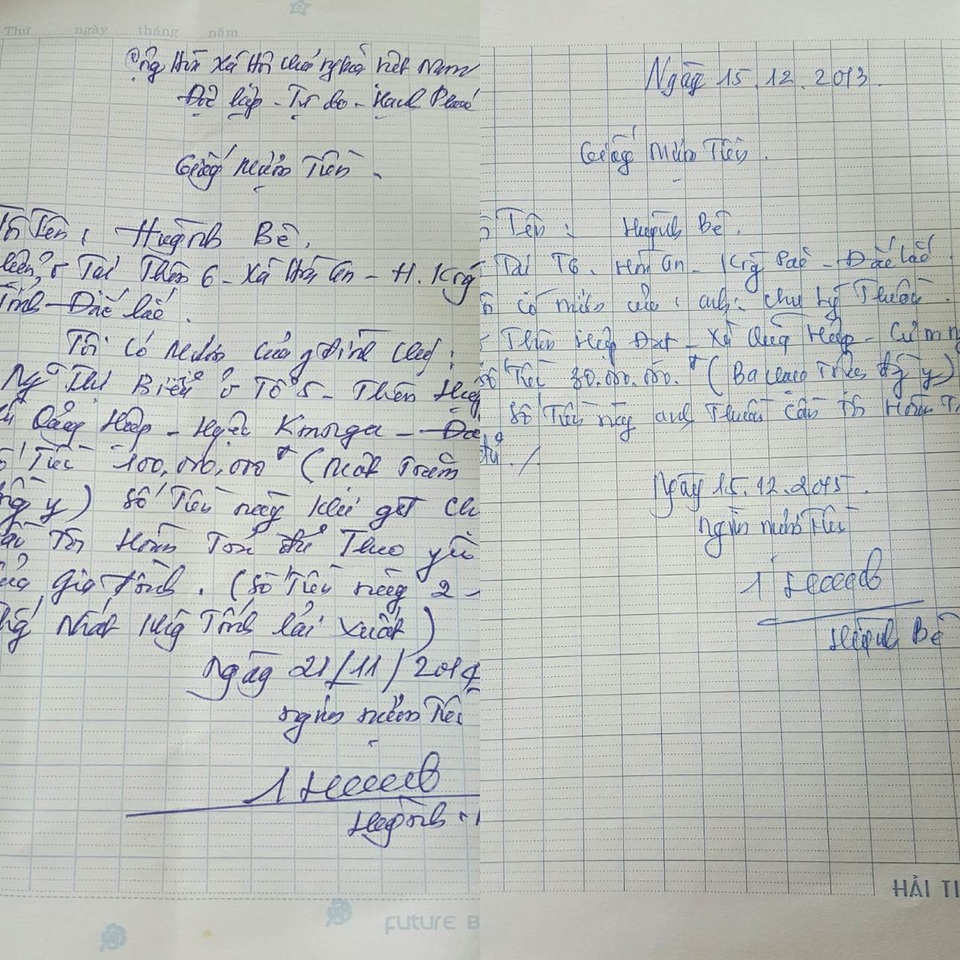 Thứ ngày tháng năm
Cộng Hòa Xã Hội chủ nghĩa Việt Nam
Độc lập - Tự do - Hạnh Phúc
Giấy Mượn Tiền
Tên: Huỳnh Bê,
ở Tại Thôn 6 - Xã Hòa An - H. Krg
Tỉnh Đắc lắc.
Tôi có Mượn của gđình
Thị Biển ở Tổ 5 - Thôn Hiệp
Quảng Hiệp - Huyện Kmnga -
Tiền 100,000,000đ (Một Trăm
y) Số Tiền này khi gđ
Tôi Hoàn Toán đủ Theo yêu
gia đình. (Số Tiền này 2
Nhất khg Tính lãi xuất)
Ngày 21/11/2014
người mượn Tiền
Huỳnh
FUTURE B
Ngày 15.12.2013
Giấy Mượn Tiền.
Tên: Huỳnh Bê.
Tại T6. Hòa An - Krg Pắc - Đắc lắc
có mượn của: anh: chu Lý Thuấn.
Thôn Hiệp Đạt - Xã Quảng Hiệp -
Tiền 30.000.000.đ (Ba chục Triệu đg y)
Số Tiền này anh Thuấn cần Tôi Hoàn
đủ./
Ngày 15.12.2015.
người mượn Tiền
Huỳnh Bê
HẢI TI